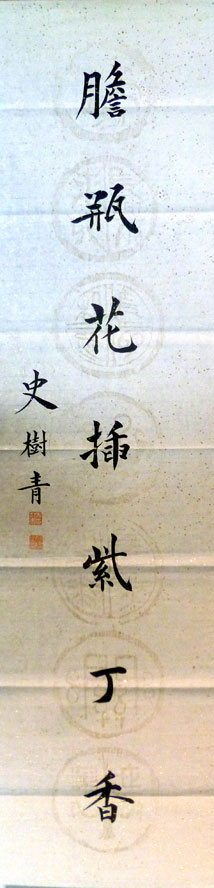 膽瓶花插紫丁香
史樹青